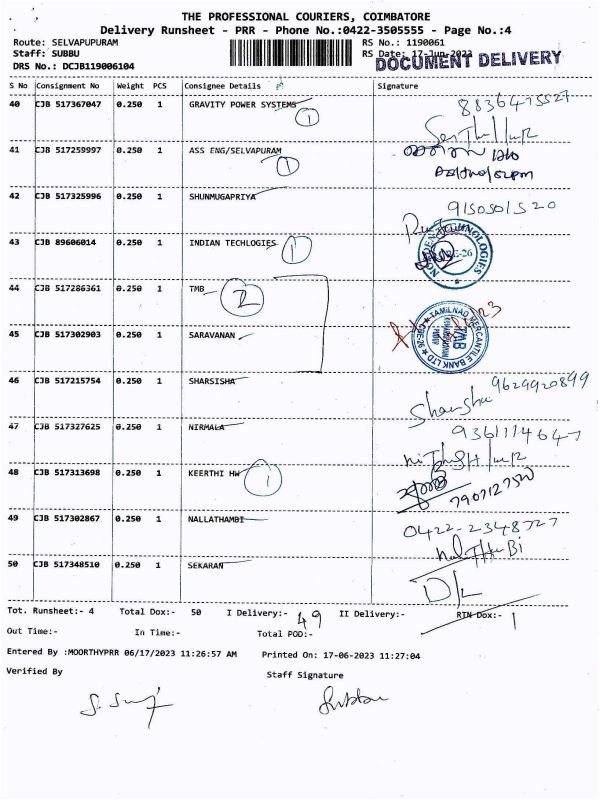 THE PROFESSIONAL COURIERS, COIMBATORE
Delivery Runsheet - PRR - Phone No.:0422-3505555 - Page No.:4
Route: SELVAPUPURAM RS No.: 1190061
Staff: SUBBU RS Date: 17-Jun-2023
DOCUMENT DELIVERY
DRS No.: DCJB119006104
S No Consignment No Weight PCS Consignee Details Signature
40 CJB 517367047 0.250 1 GRAVITY POWER SYSTEMS 1 8836475527
41 CJB 517259997 0.250 1 ASS ENG/SELVAPURAM 1
42 CJB 517325996 0.250 1 SHUNMUGAPRIYA 9150501520
43 CJB 89606014 0.250 1 INDIAN TECHLOGIES 1
44 CJB 517286361 0.250 1 TMB 2
TAMILNAD MERCANTILE BANK LTD
TMB
45 CJB 517302903 0.250 1 SARAVANAN
46 CJB 517215754 0.250 1 SHARSISHA 9629920899
47 CJB 517327625 0.250 1 NIRMALA 9361114647
48 CJB 517313698 0.250 1 KEERTHI HW 1 7907127520
49 CJB 517302867 0.250 1 NALLATHAMBI 0422-2348727
50 CJB 517348510 0.250 1 SEKARAN D/L
Tot. Runsheet:- 4 Total Dox:- 50 I Delivery:- 49 II Delivery:- RTN Dox:- 1
Out Time:- In Time:- Total POD:-
Entered By :MOORTHYPRR 06/17/2023 11:26:57 AM Printed On: 17-06-2023 11:27:04
Verified By Staff Signature
Subbu